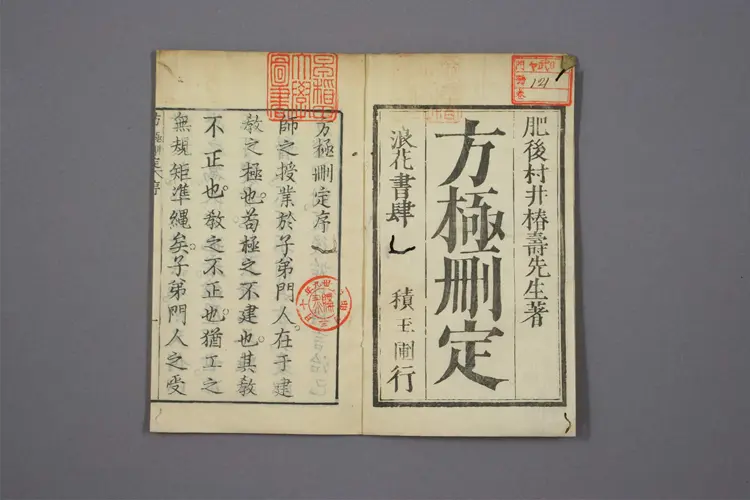 肥後村井椿壽先生著
方極刪定
浪花書肆 積玉圃行
方極刪定序
師之授業於子弟門人在于建
教之極也。苟極之不建也。其教
不正也。教之不正也。猶工之
無規矩準縄矣。子弟門人之受
121